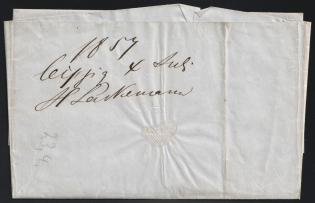 1857
Leipzig 4 Juli
H Lackemann
234